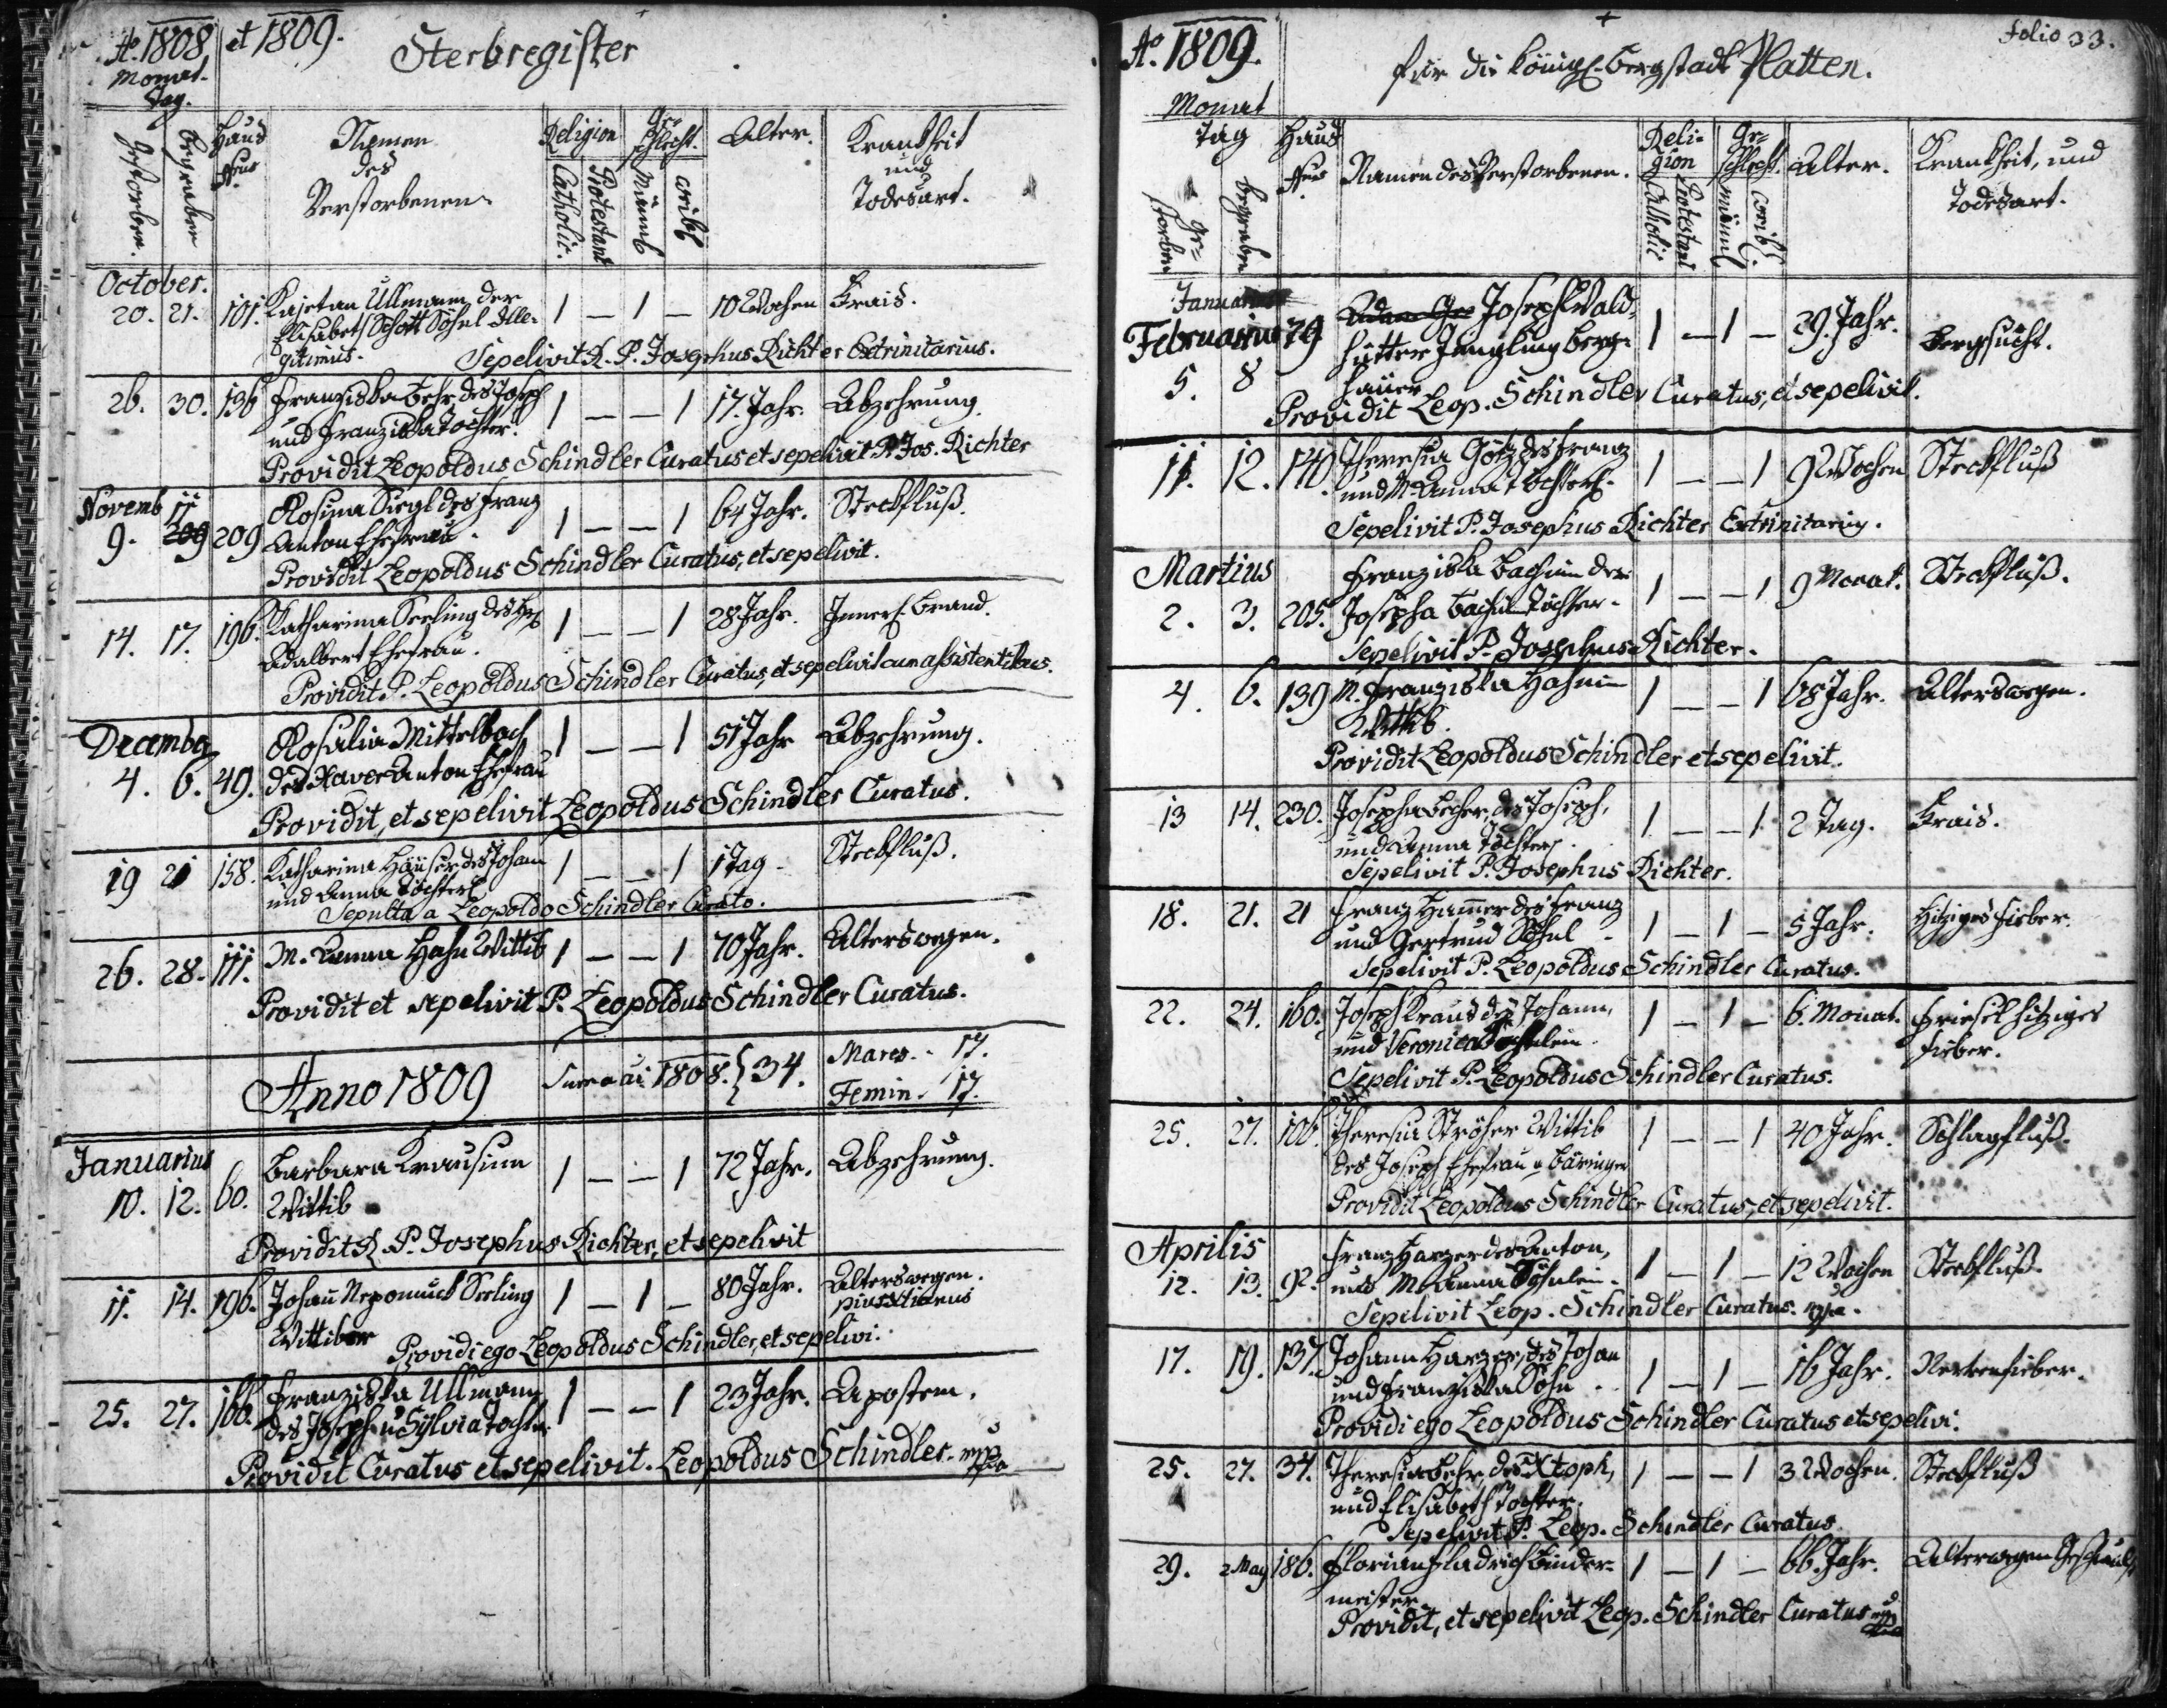 Ao. 1808 et 1809. Sterbregister
Monat.
Tag.
Gestorben. begraben Haus Nrus Namen des Verstorbenen. Religion Catholic. Protestant Geschlecht. Männl weibl Alter. Krankheit und Todesart.
October.
20. 21. 101. Kajetan Ullmann der 1 — 1 — 10 Wochen Frais.
Elisabeth Schott Söhnl Ille-
gitimus. Sepelivit R. P. Josephus Richter Extrinitarius.
26. 30. 136 Franziska Behr des Joseph 1 — — 1 17. Jahr. Abzehrung.
und Franziska Tochter.
Providit Leopoldus Schindler Curatus et sepelivit P. Jos. Richter
Novemb 11
9. 209 209 Rosina Siegl des Franz 1 — — 1 64 Jahr. Steckfluß.
Anton Ehefrau.
Providit Leopoldus Schindler Curatus, et sepelivit.
14. 17. 196. Katharina Seeling des 1 — — 1 28 Jahr. Innerl. Brand.
Adalbert Ehefrau.
Providit P. Leopoldus Schindler Curatus, et sepelivit cum assistentibus.
December Rosalia Mittelbach 1 — — 1 51 Jahr Abzehrung.
4. 6. 49. des Xaver Anton Ehefrau
Providit, et sepelivit Leopoldus Schindler Curatus.
19 21 158. Katharina Häuser des Johann 1 — — 1 1 Tag. Steckfluß.
und Anna Töchterl.
Sepulta a Leopoldo Schindler Curato.
26. 28. 111. M. Anna Hahn Wittib 1 — — 1 70 Jahr. Alterswegen.
Providit et sepelivit P. Leopoldus Schindler Curatus.
Anno 1809 Summa ai 1808. } 34. Mares. 17.
Femin. 17.
Januarius Barbara Krausinn 1 — — 1 72 Jahr. Abzehrung.
10. 12. 60. Wittib
Providit R. P. Josephus Richter, et sepelivit
11. 14. 196. Johann Nepomuck Seeling 1 — 1 — 80 Jahr. Alterswegen.
Wittiber Providi ego Leopoldus Schindler, et sepelivi.
25. 27. 166. Franziska Ullmann 1 — — 1 23 Jahr. Apostem.
des Joseph u Sylvia Tochter
Providit Curatus et sepelivit. Leopoldus Schindler. mpa
Ao. 1809. für die königl. Bergstadt Platten. folio 33.
Monat
Tag
gestorben begraben Haus Nrus Namen des Verstorbenen. Religion Catholic Protestant Geschlecht. männl weibl. Alter. Krankheit, und Todesart.
Januarius
Februarius 79 Joseph Wald- 1 — 1 — 29. Jahr. Bergsucht.
5. 8 hütter Jüngling Berg-
häuer
Providit Leop. Schindler Curatus, et sepelivit.
11. 12. 140. Theresia Götz des Franz 1 — — 1 9 Wochen Steckfluß
und M. Anna Töchterl.
Sepelivit P. Josephus Richter Extrinitariq.
Martius Franziska Bachinn der 1 — — 1 9 Monat. Steckfluß.
2. 3. 205. Josepha Tochter.
Sepelivit P. Josephus Richter.
4. 6. 139 M. Franziska Hahnin 1 — — 1 68 Jahr. Alterswegen.
Wittib.
Providit Leopoldus Schindler et sepelivit.
13 14. 230. Josepha Becher, des Joseph, 1 — — 1 2 Tag. Frais.
und Anna Töchterl.
Sepelivit P. Josephus Richter.
18. 21. 21 Franz Hammer des Franz 1 — 1 — 5 Jahr. Hitziges Fieber.
und Gertrud Söhnl
Sepelivit P. Leopoldus Schindler Curatus.
22. 24. 160. Joseph Kraus des Johann, 1 — 1 — 6. Monat. Friesel hitziges
und Veronica Söhnlein. Fieber.
Sepelivit P. Leopoldus Schindler Curatus.
25. 27. 106. Theresia Ströher Wittib 1 — — 1 40 Jahr. Schlagfluß.
des Joseph Ehefrau v Bäringen
Providit Leopoldus Schindler Curatus, et sepelivit.
Aprilis Franz Harzer des Anton, 1 — 1 — 12 Wochen Steckfluß.
12. 13. 92. und M. Anna Söhnlein.
Sepelivit Leop. Schindler Curatus. mpa.
17. 19. 137. Johann Harzer, des Johan 1 — 1 — 16 Jahr. Nervenfieber.
und Franziska Sohn.
Providi ego Leopoldus Schindler Curatus et sepelivi.
25. 27. 34. Theresia Behr des Xtoph, 1 — — 1 3 Wochen. Steckfluß
und Elisabeth Tochter.
Sepelivit P. Leop. Schindler Curatus
29. 2 May 186. Florian Hladrich Binder- 1 — 1 — 66. Jahr. Alterswegen Geschwulst
meister.
Providit, et sepelivit Leop. Schindler Curatus mpa